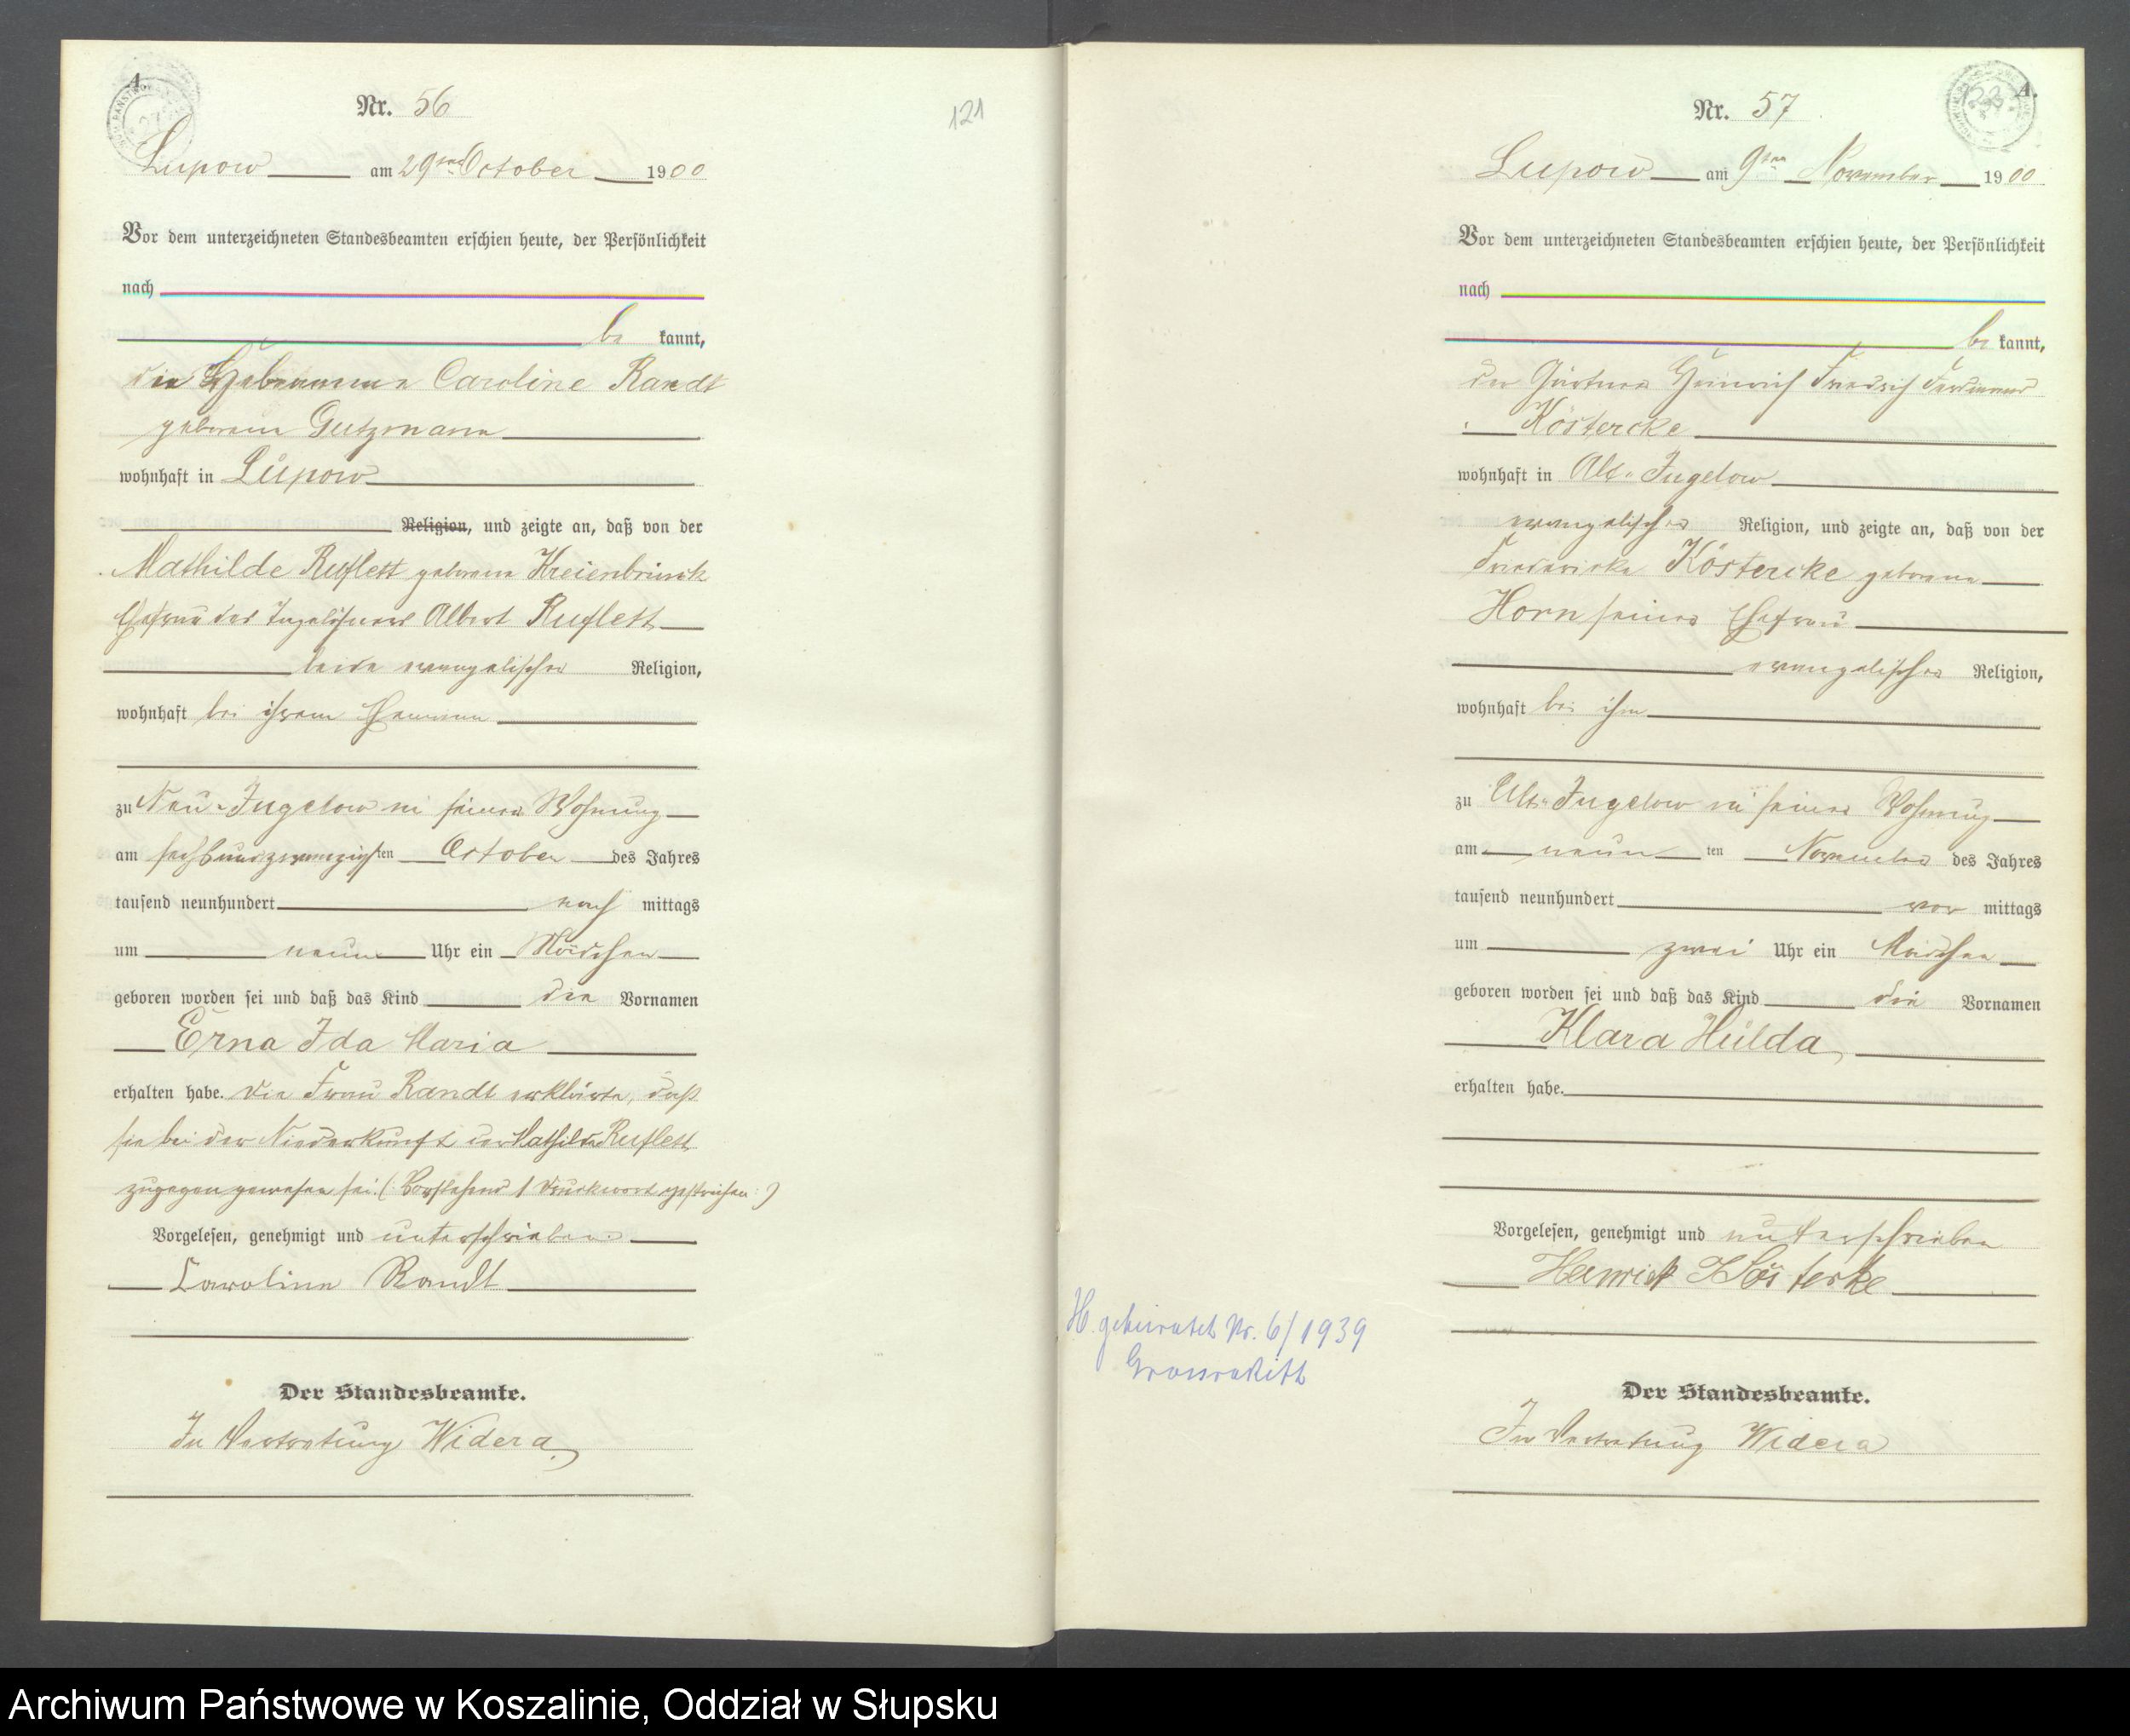 A.
Nr. 56
121
Lupow am 29ten October 1900
Vor dem unterzeichneten Standesbeamten erschien heute, der Persönlichkeit
nach
be kannt,
die Hebamme Caroline Randt
geborene Gutzmann
wohnhaft in Lupow
Religion, und zeigte an, daß von der
Mathilde Ruflett geborene Kreienbrinck
Ehefrau des Albert Ruflett
beide evangelischer Religion,
wohnhaft bei ihrem Ehemann
zu Neu-Jugelow in seiner Wohnung
am sechsundzwanzigsten October des Jahres
tausend neunhundert nach mittags
um neun Uhr ein Mädchen
geboren worden sei und daß das Kind die Vornamen
Erna Ida Maria
erhalten habe. Die Frau Randt erklärte, daß
sie bei der Niederkunft der Mathilde Ruflett
zugegen gewesen sei. (: Vorstehend 1 Druckwort gestrichen :)
Vorgelesen, genehmigt und unterschrieben.
Caroline Randt
Der Standesbeamte.
In Vertretung Widera
A.
Nr. 57
Lupow am 9ten November 1900
Vor dem unterzeichneten Standesbeamten erschien heute, der Persönlichkeit
nach
be kannt,
der Gärtner Heinrich Friedrich Ferdinand
Köstercke
wohnhaft in Alt-Jugelow
evangelischer Religion, und zeigte an, daß von der
Friederike Köstercke geborene
Horn seiner Ehefrau
evangelischer Religion,
wohnhaft bei ihm
zu Alt-Jugelow in seiner Wohnung
am neun ten November des Jahres
tausend neunhundert vor mittags
um zwei Uhr ein Mädchen
geboren worden sei und daß das Kind die Vornamen
Klara Hulda
erhalten habe.
Vorgelesen, genehmigt und unterschrieben
Heinrich Kösterke
H. geheiratet Nr. 6/1939
Grossrakitt
Der Standesbeamte.
In Vertretung Widera
Archiwum Państwowe w Koszalinie, Oddział w Słupsku